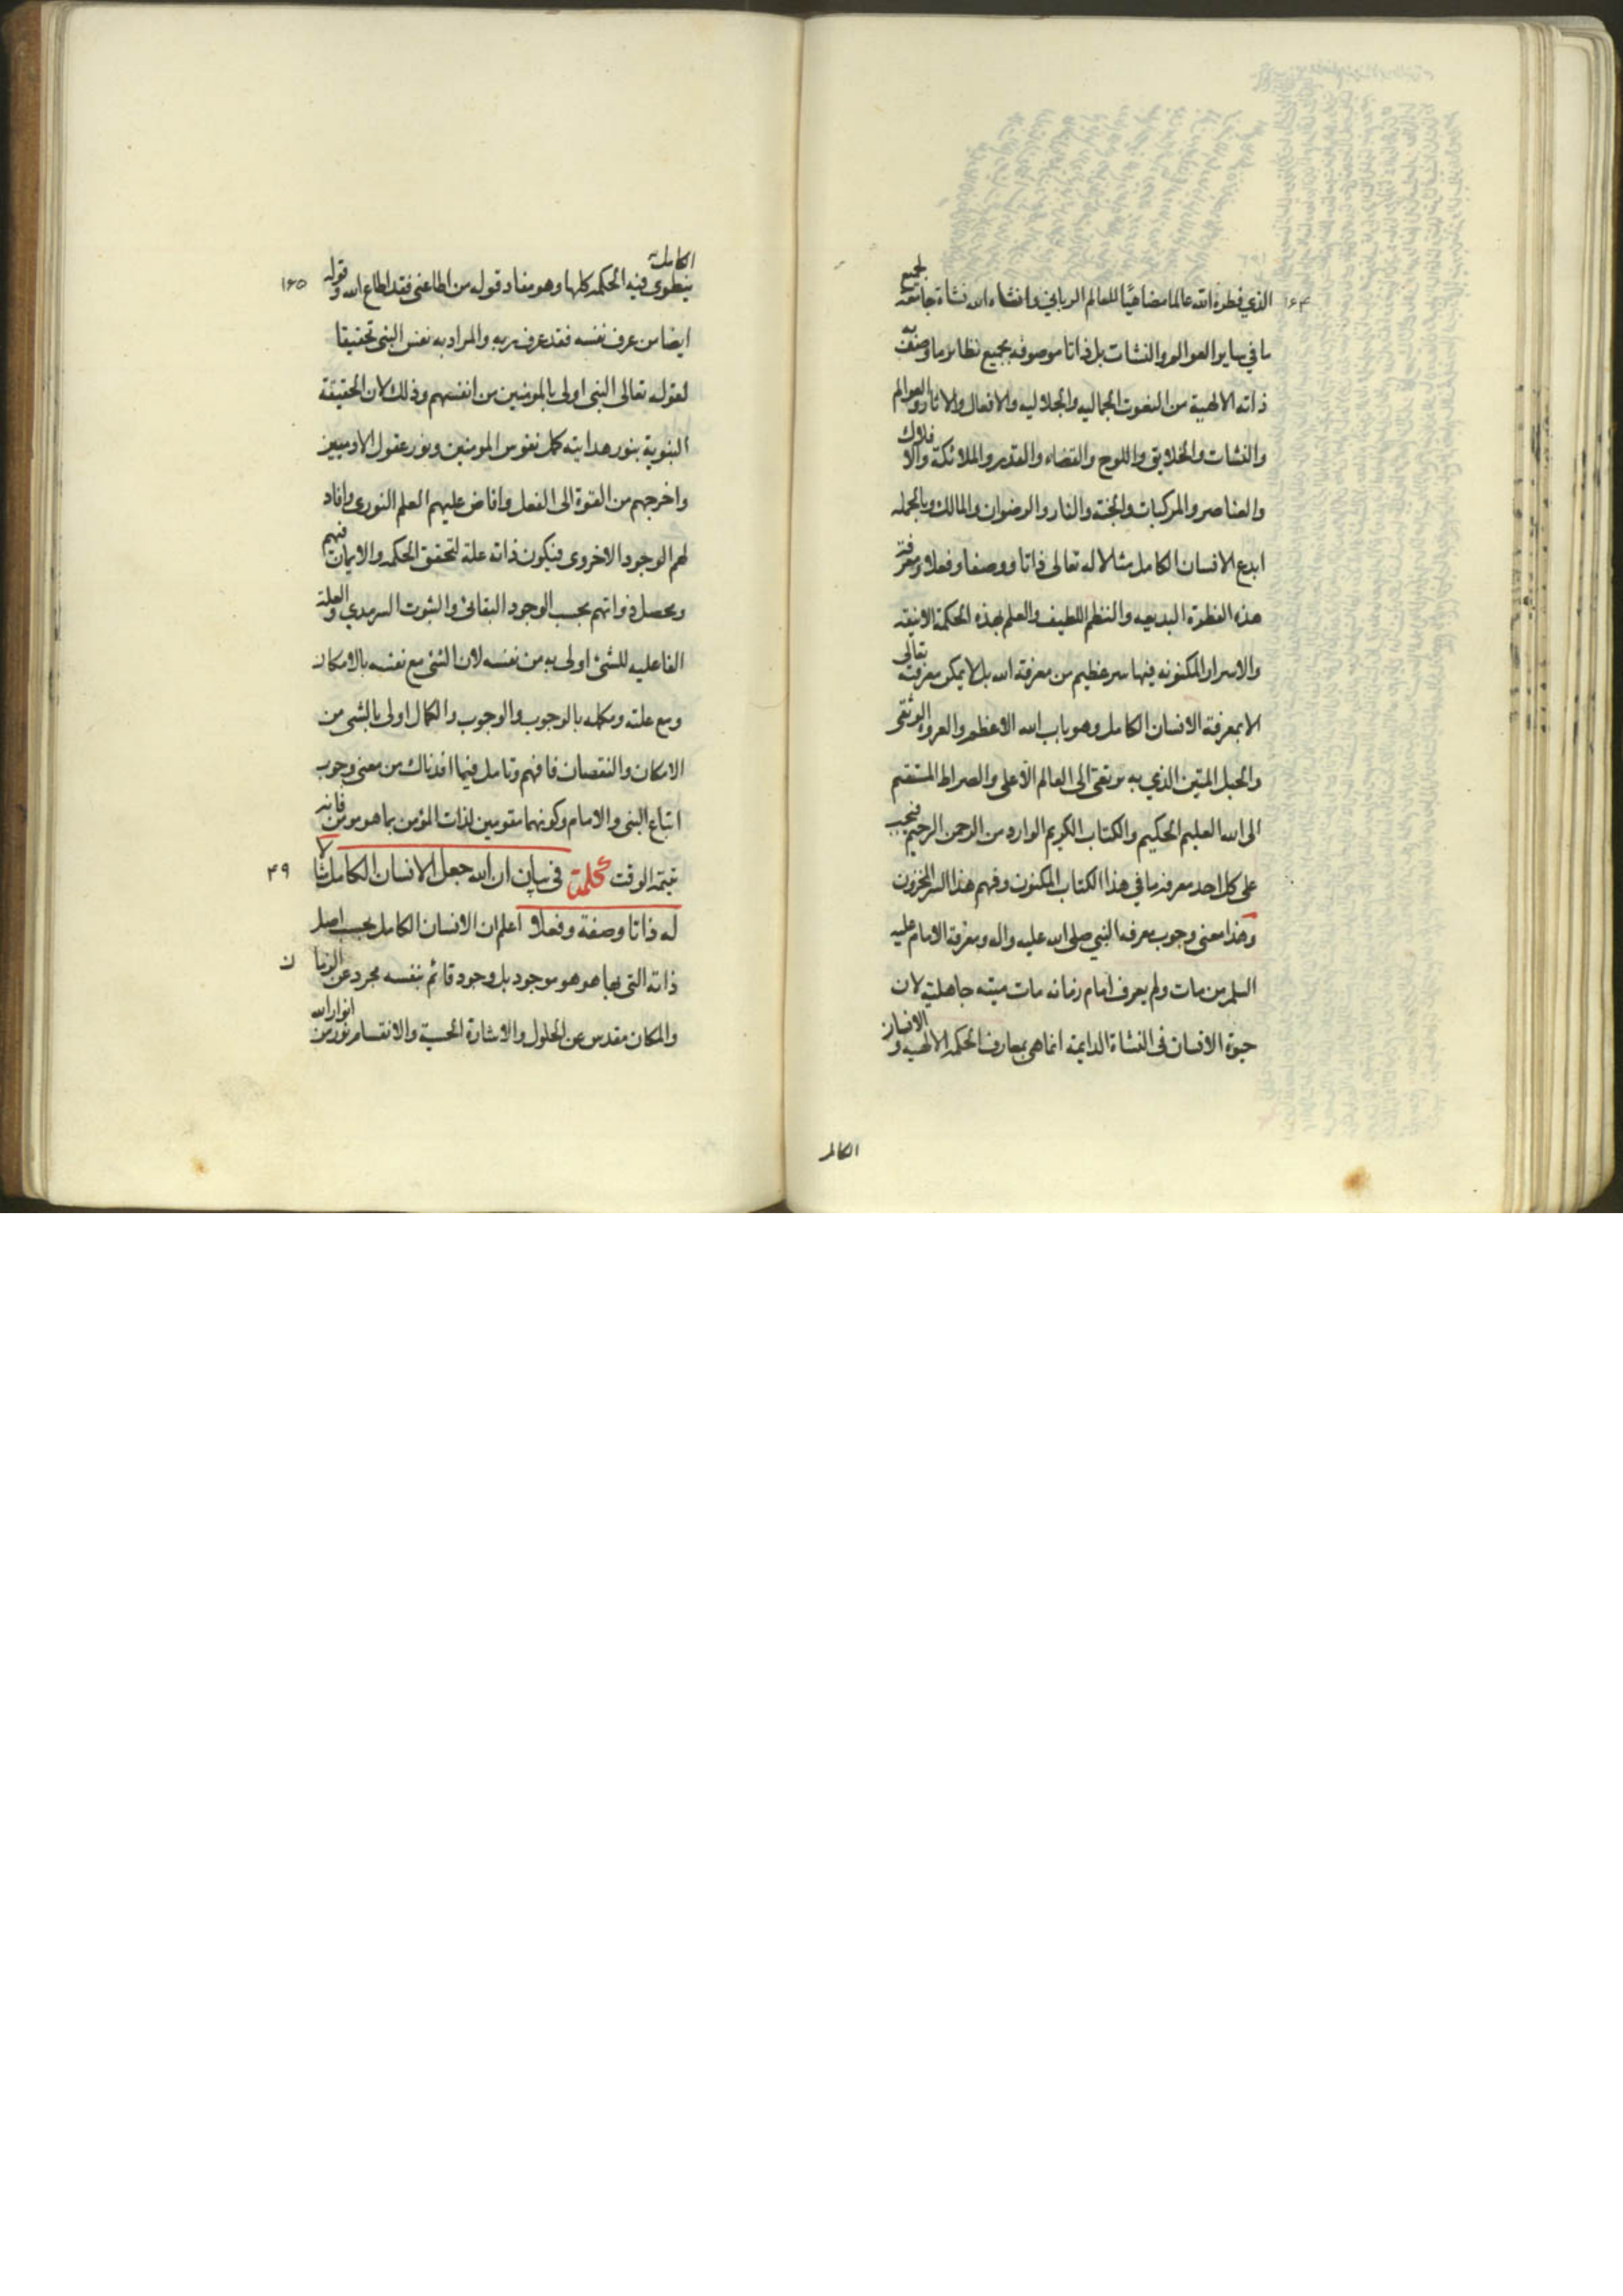 ١٦٤
الذي فطره الله عالما مضاهيا للعالم الرباني وانشاه الله نشاة جامعة لجميع
ما في ساير العوالم والنشات بل ذاتا موصوفه بجميع نظاير ما وصفت به
ذاته الالهية من النعوت الجماليه والجلاليه والافعال والاثار والعوالم
والنشات والخلايق واللوح والقضاء والقدر والملائكة والافلاك
والعناصر والمركبات والجنة والنار والرضوان والمالك وبالجمله
ابدع الانسان الكامل مثلا له تعالى ذاتا ووصفا وفعلا ومعرفة
هذه الفطرة البديعه والنظم اللطيف والعلم بهذه الحكمة الانيقه
والاسرار المكنونه فيها سر عظيم من معرفة الله بل لا يمكن معرفته تعالى
الا بمعرفة الانسان الكامل وهو باب الله الاعظم والعروة الوثقى
والحبل المتين الذي به يرتقى الى العالم الاعلى والصراط المستقيم
الى الله العليم الحكيم والكتاب الكريم الوارد من الرحمن الرحيم فيجب
على كل احد معرفة ما في هذا الكتاب المكنون وفهم هذا السر المخزون
وهذا معنى وجوب معرفة النبي صلى الله عليه واله ومعرفة الامام عليه
السلم من مات ولم يعرف امام زمانه مات ميته جاهلية لان
حيوة الانسان في النشاة الدايمة انما هي بمعارف الحكمه الالهيه و الانسان
الكامل
١٦٥
الكامل ينطوي فيه الحكمه كلها وهو مفاد قوله من اطاعني فقد اطاع الله وقوله
ايضا من عرف نفسه فقد عرف ربه والمراد به نفس النبي تحقيقا
لقوله تعالى النبي اولى بالمومنين من انفسهم وذلك لان الحقيقة
النبوية بنور هدايته كمل نفوس المومنين ونور عقول الادميين
واخرجهم من القوة الى الفعل وافاض عليهم العلم النوري وافاد
لهم الوجود الاخروي فيكون ذاته علة لتحقق الحكمه والايمان فيهم
ويحصل ذواتهم بحسب الوجود البقائي والثبوت السرمدي والعلة
الفاعليه للشئ اولى به من نفسه لان الشئ مع نفسه بالامكان
ومع علته ومكمله بالوجوب والوجوب والكمال اولى بالشي من
الامكان والنقصان فافهم وتامل فيما افدناك من معنى وجوب
اتباع النبي والامام وكونهما مقومين لذات المؤمن بما هو مومن فانه
٤٩
الوقت كلمة في بيان ان الله جعل الانسان الكامل مثالا
له ذاتا وصفة وفعلا اعلم ان الانسان الكامل بحسب اصل
ذاته التي بها هو هو موجود بل وجود قائم بنفسه مجرد عن الزمان
والمكان مقدس عن الحلول والاشارة الحسية والانقسام نور من انوار الله